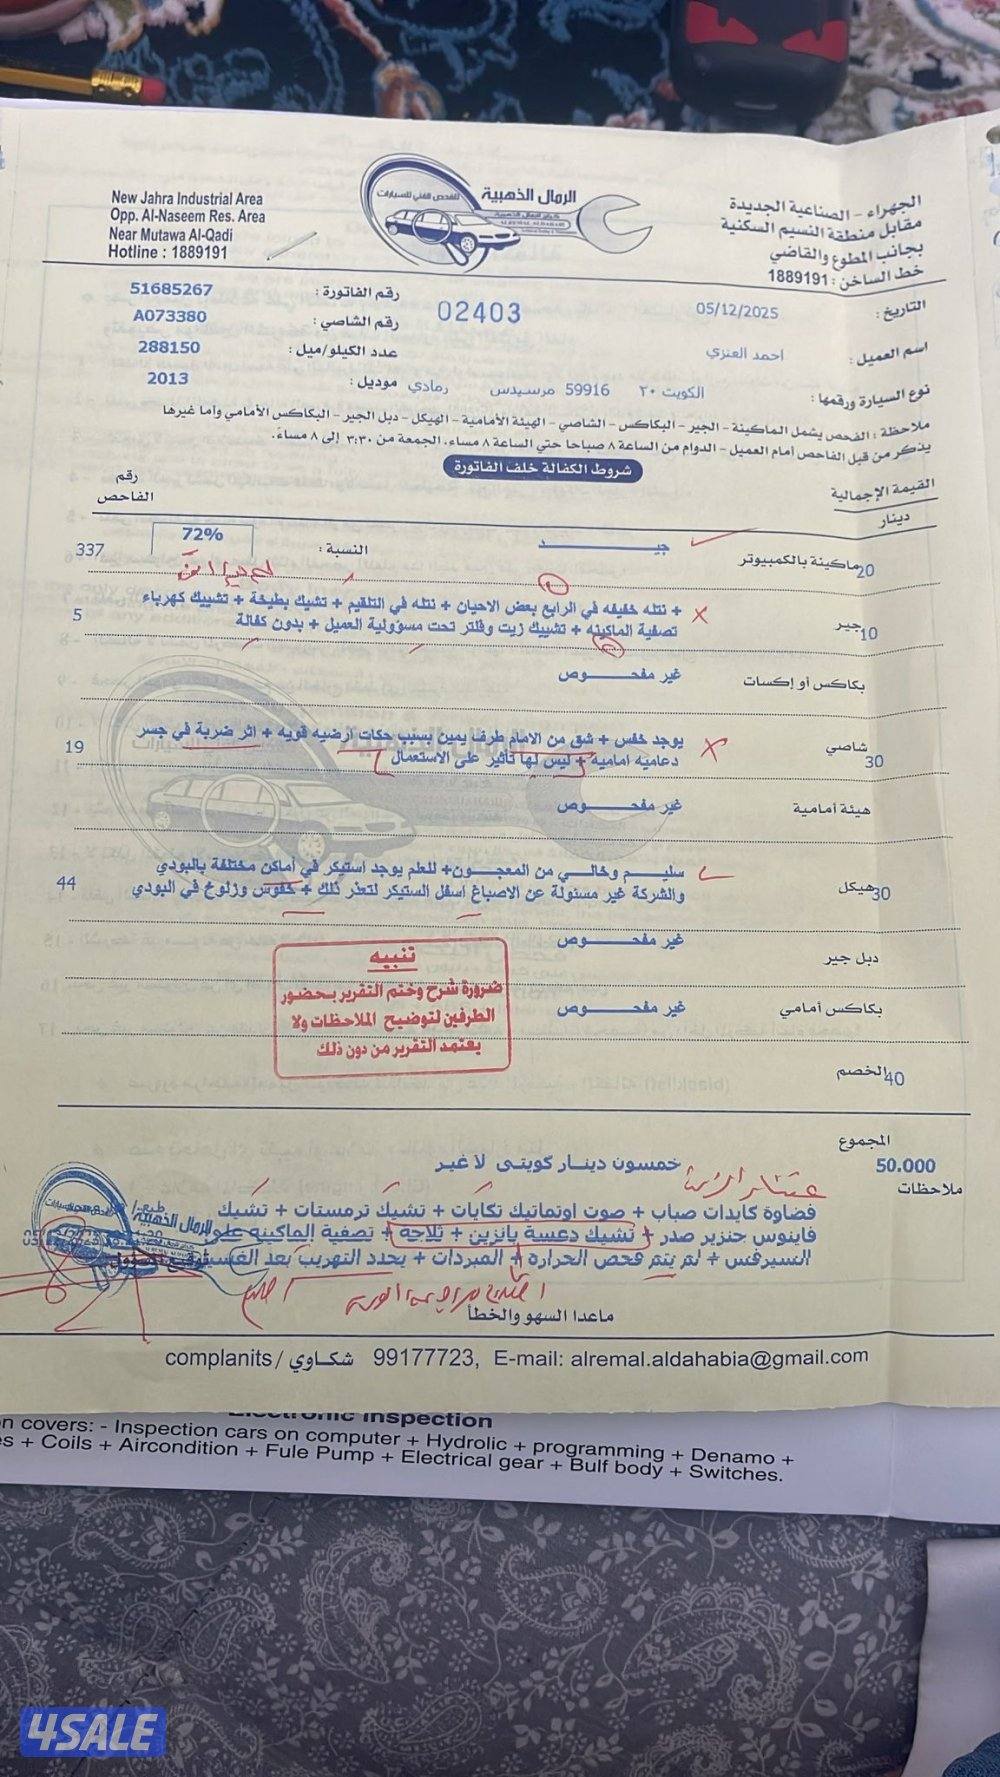 New Jahra Industrial Area
Opp. Al-Naseem Res. Area
Near Mutawa Al-Qadi
Hotline : 1889191
الرمال الذهبية
للفحص الفني للسيارات
الجهراء - الصناعية الجديدة
مقابل منطقة النسيم السكنية
بجانب المطوع والقاضي
خط الساخن : 1889191
التاريخ : 05/12/2025
02403
رقم الفاتورة : 51685267
رقم الشاصي : A073380
اسم العميل : احمد العنزي
عدد الكيلو/ميل : 288150
نوع السيارة ورقمها : الكويت ٢٠ 59916 مرسيدس رمادي
موديل : 2013
ملاحظة : الفحص يشمل الماكينة - الجير - البكاكس - الشاصي - الهيئة الأمامية - الهيكل - دبل الجير - البكاكس الأمامي وأما غيرها
يذكر من قبل الفاحص أمام العميل - الدوام من الساعة ٨ صباحا حتى الساعة ٨ مساء. الجمعة من ٣:٣٠ إلى ٨ مساءً.
شروط الكفالة خلف الفاتورة
القيمة الإجمالية
دينار
رقم الفاحص
ماكينة بالكمبيوتر 20 جيد النسبة : 72% 337
جير 10 + نتله خفيفه في الرابع بعض الاحيان + نتله في التلقيم + تشيك بطيخة + تشييك كهرباء
تصفية الماكينه + تشييك زيت وفلتر تحت مسؤولية العميل + بدون كفالة 5
بكاكس أو إكسات غير مفحوص
شاصي 30 يوجد خفس + شق من الامام طرف يمين بسبب حكات ارضيه قويه + اثر ضربة في جسر
دعاميه اماميه + ليس لها تأثير على الاستعمال 19
هيئة أمامية غير مفحوص
هيكل 30 سليم وخالي من المعجون+ للعلم يوجد استيكر في أماكن مختلفة بالبودي
والشركة غير مسئولة عن الاصباغ اسفل الستيكر لتعذر ذلك + خفوس وزلوخ في البودي 44
دبل جير غير مفحوص
بكاكس أمامي غير مفحوص
تنبيه
ضرورة شرح وختم التقرير بحضور
الطرفين لتوضيح الملاحظات ولا
يعتمد التقرير من دون ذلك
الخصم 40
المجموع
50.000 خمسون دينار كويتي لا غير
ملاحظات
فضاوة كايدات صباب + صوت اوتماتيك تكايات + تشيك ترمستات + تشيك
فاينوس جنزير صدر + تشيك دعسة بانزين + ثلاجه + تصفية الماكينه على
السيرفس + لم يتم فحص الحرارة + المبردات + يحدد التهريب بعد الغسيل
ماعدا السهو والخطأ
complanits / شكاوي 99177723, E-mail: alremal.aldahabia@gmail.com
Electronic Inspection
n covers: - Inspection cars on computer + Hydrolic + programming + Denamo +
es + Coils + Aircondition + Fule Pump + Electrical gear + Bulf body + Switches.
4SALE